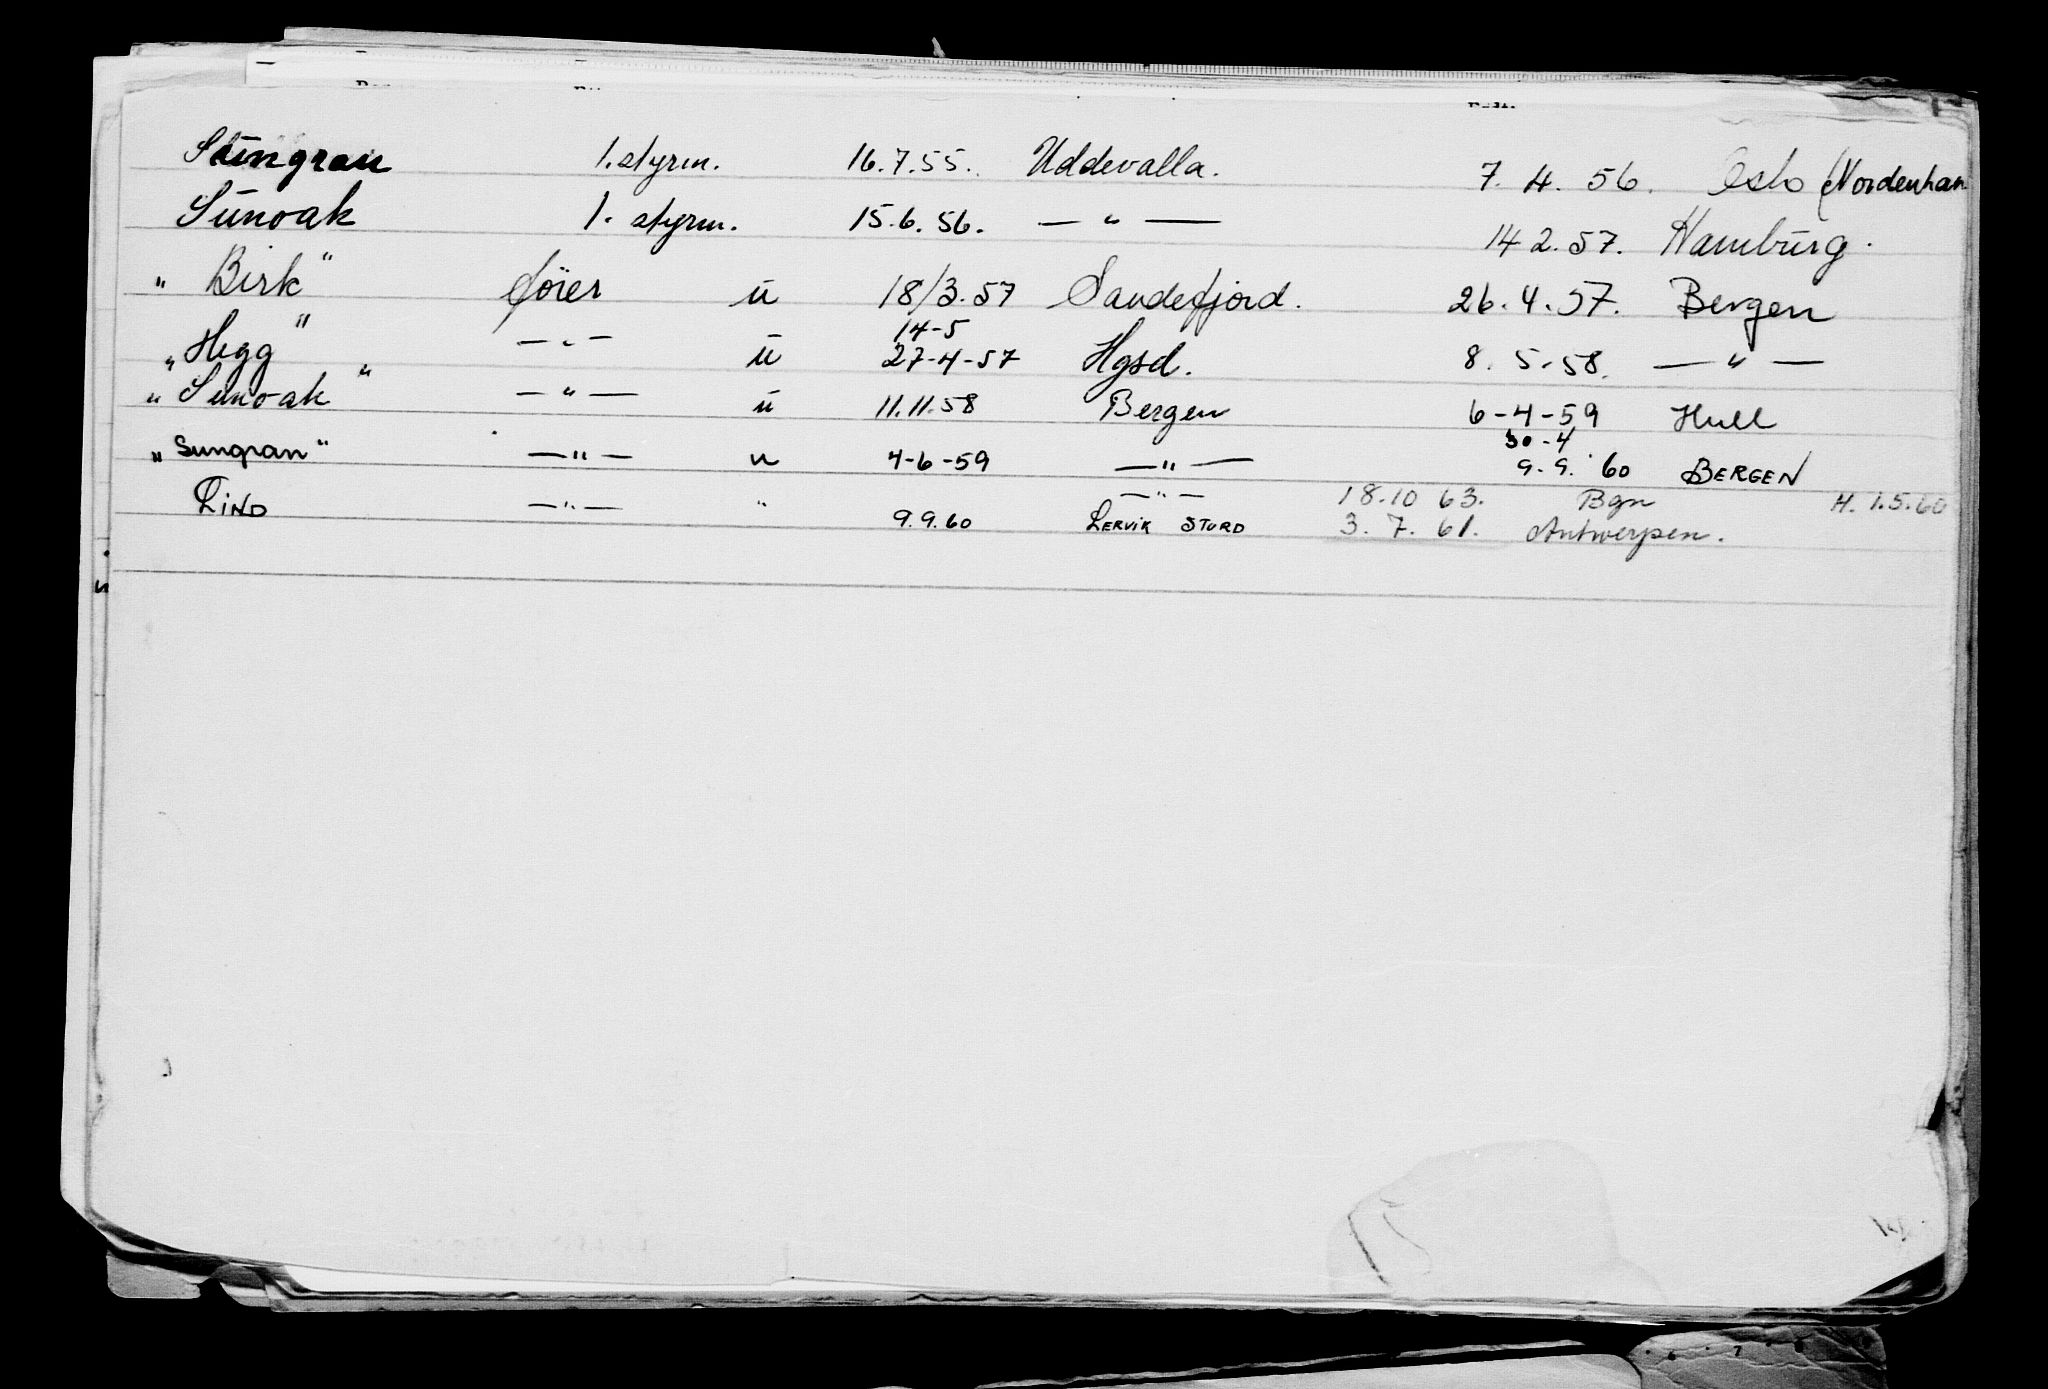 Sungran 1. styrm. 16.7.55. Uddevalla. 7. 4. 56. Oslo (Nordenham
Sunoak 1. styrm. 15.6.56. — " — 14 2.57. Hamburg.
" Birk " fører u 18/3.57 Sandefjord. 26.4.57. Bergen
14-5
" Hegg " — " — u 27-4-57 Hgsd. 8. 5.58. — " —
" Sunoak " — " — u 11.11.58 Bergen 6-4-59 Hull
30-4
" Sungran " — " — u 4-6-59 — " — 9.9.'60 BERGEN
— " — 18.10 63. Bgn H. 1.5.60
LIND — " — " 9.9.60 LERVIK STORD 3. 7. 61. Antwerpen.